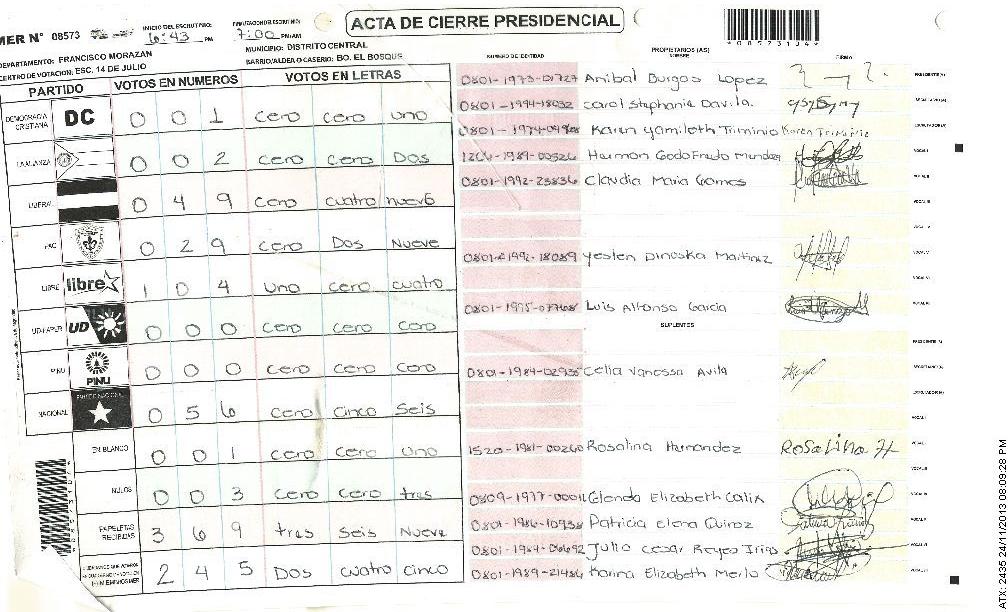 ACTA DE CIERRE PRESIDENCIAL
MER N° 08573
INICIO DEL ESCRUTINIO:
6:43 PM
7:00 PM/AM
*08573134*
DEPARTAMENTO: FRANCISCO MORAZAN
MUNICIPIO: DISTRITO CENTRAL
CENTRO DE VOTACION: ESC. 14 DE JULIO
BARRIO/ALDEA O CASERIO: BO. EL BOSQUE
PARTIDO VOTOS EN NUMEROS VOTOS EN LETRAS
DEMOCRACIA CRISTIANA DC 0 0 1 cero cero uno
LA ALIANZA 0 0 2 cero cero Dos
LIBERAL 0 4 9 cero cuatro nueve
PAC 0 2 9 cero Dos Nueve
LIBRE libre 1 0 4 uno cero cuatro
UD-FAPER UD 0 0 0 cero cero cero
PINU PINU 0 0 0 cero cero cero
NACIONAL 0 5 6 cero cinco seis
EN BLANCO 0 0 1 cero cero uno
NULOS 0 0 3 cero cero tres
PAPELETAS RECIBIDAS 3 6 9 tres seis Nueve
2 4 5 Dos cuatro cinco
NUMERO DE IDENTIDAD
PROPIETARIOS (AS)
NOMBRE
FIRMA
0801-1973-01727 Anibal Burgos Lopez
0801-1994-18032 Carol Stephanie Davila
0801-1974- Karen Yamileth Triminio Karen Triminio
Harmon Godofredo Mendoza
0801-1992-23836 Claudia Maria Gomes
0801-1992-18089 Yeslen Dinoska Martinez
0801-1995- Luis Alfonso Garcia
SUPLENTES
0801-1984-02935 Celia Vanessa Avila
1520-1981-00260 Rosalina Hernandez Rosalina H
0809-1977- Glenda Elizabeth Calix
0801-1986-10938 Patricia Elena Quiroz
0801-1984-06692 Julio Cesar Reyes Irias
0801-1989-21486 Karina Elizabeth Merlo
ATX: 2435 24/11/2013 08:09:28 PM